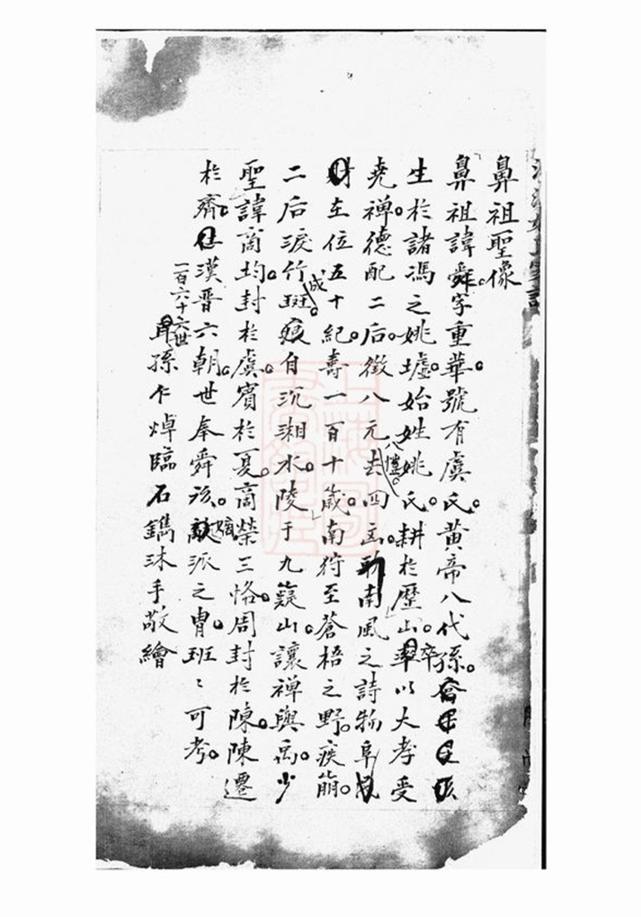 鼻祖聖像
鼻祖諱舜。字重華。號有虞氏。黃帝八代孫。
生於諸馮之姚墟。始姓姚氏。耕於歷山。卒以大孝受
堯禪。德配二后。徵八元八愷。去四凶。南風之詩物阜民
財在位五十紀。壽一百十歲。南狩至蒼梧之野。疾崩。
二后淚竹成斑。痕自沉湘水。陵于九嶷山。讓禪與禹。少
聖諱商均封於虞。賓於夏。商榮三恪。周封於陳。陳遷
於齊。漢晉六朝。世奉舜祀。嫡派之胄。班〻可考。
一百六十六世耳孫乍焯臨石鐫沐手敬繪